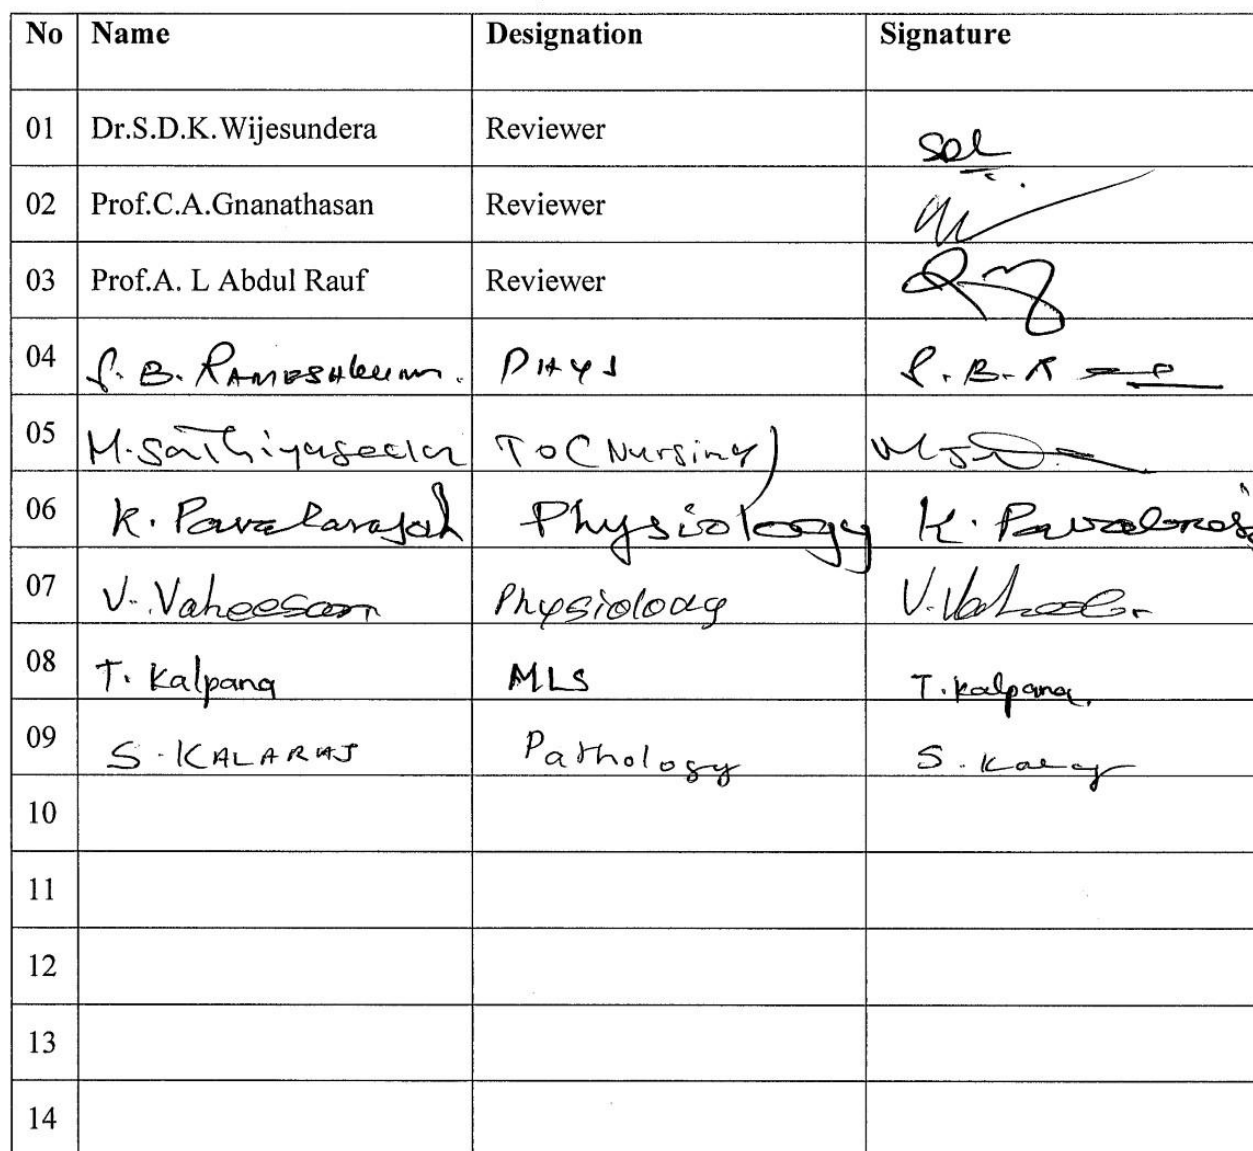 No Name Designation Signature
01 Dr.S.D.K.Wijesundera Reviewer
02 Prof.C.A.Gnanathasan Reviewer
03 Prof.A. L Abdul Rauf Reviewer
04 S. B. RAMESHkum. PHYS S. B. R
05 M. Sathiyaseelan TO (Nursing)
06 K. Pavalarajah Physiology K. Pavalaraj
07 V. Vaheesan Physiology V.
08 T. Kalpana MLS T. kalpana.
09 S. KALARAJ Pathology S.
10
11
12
13
14